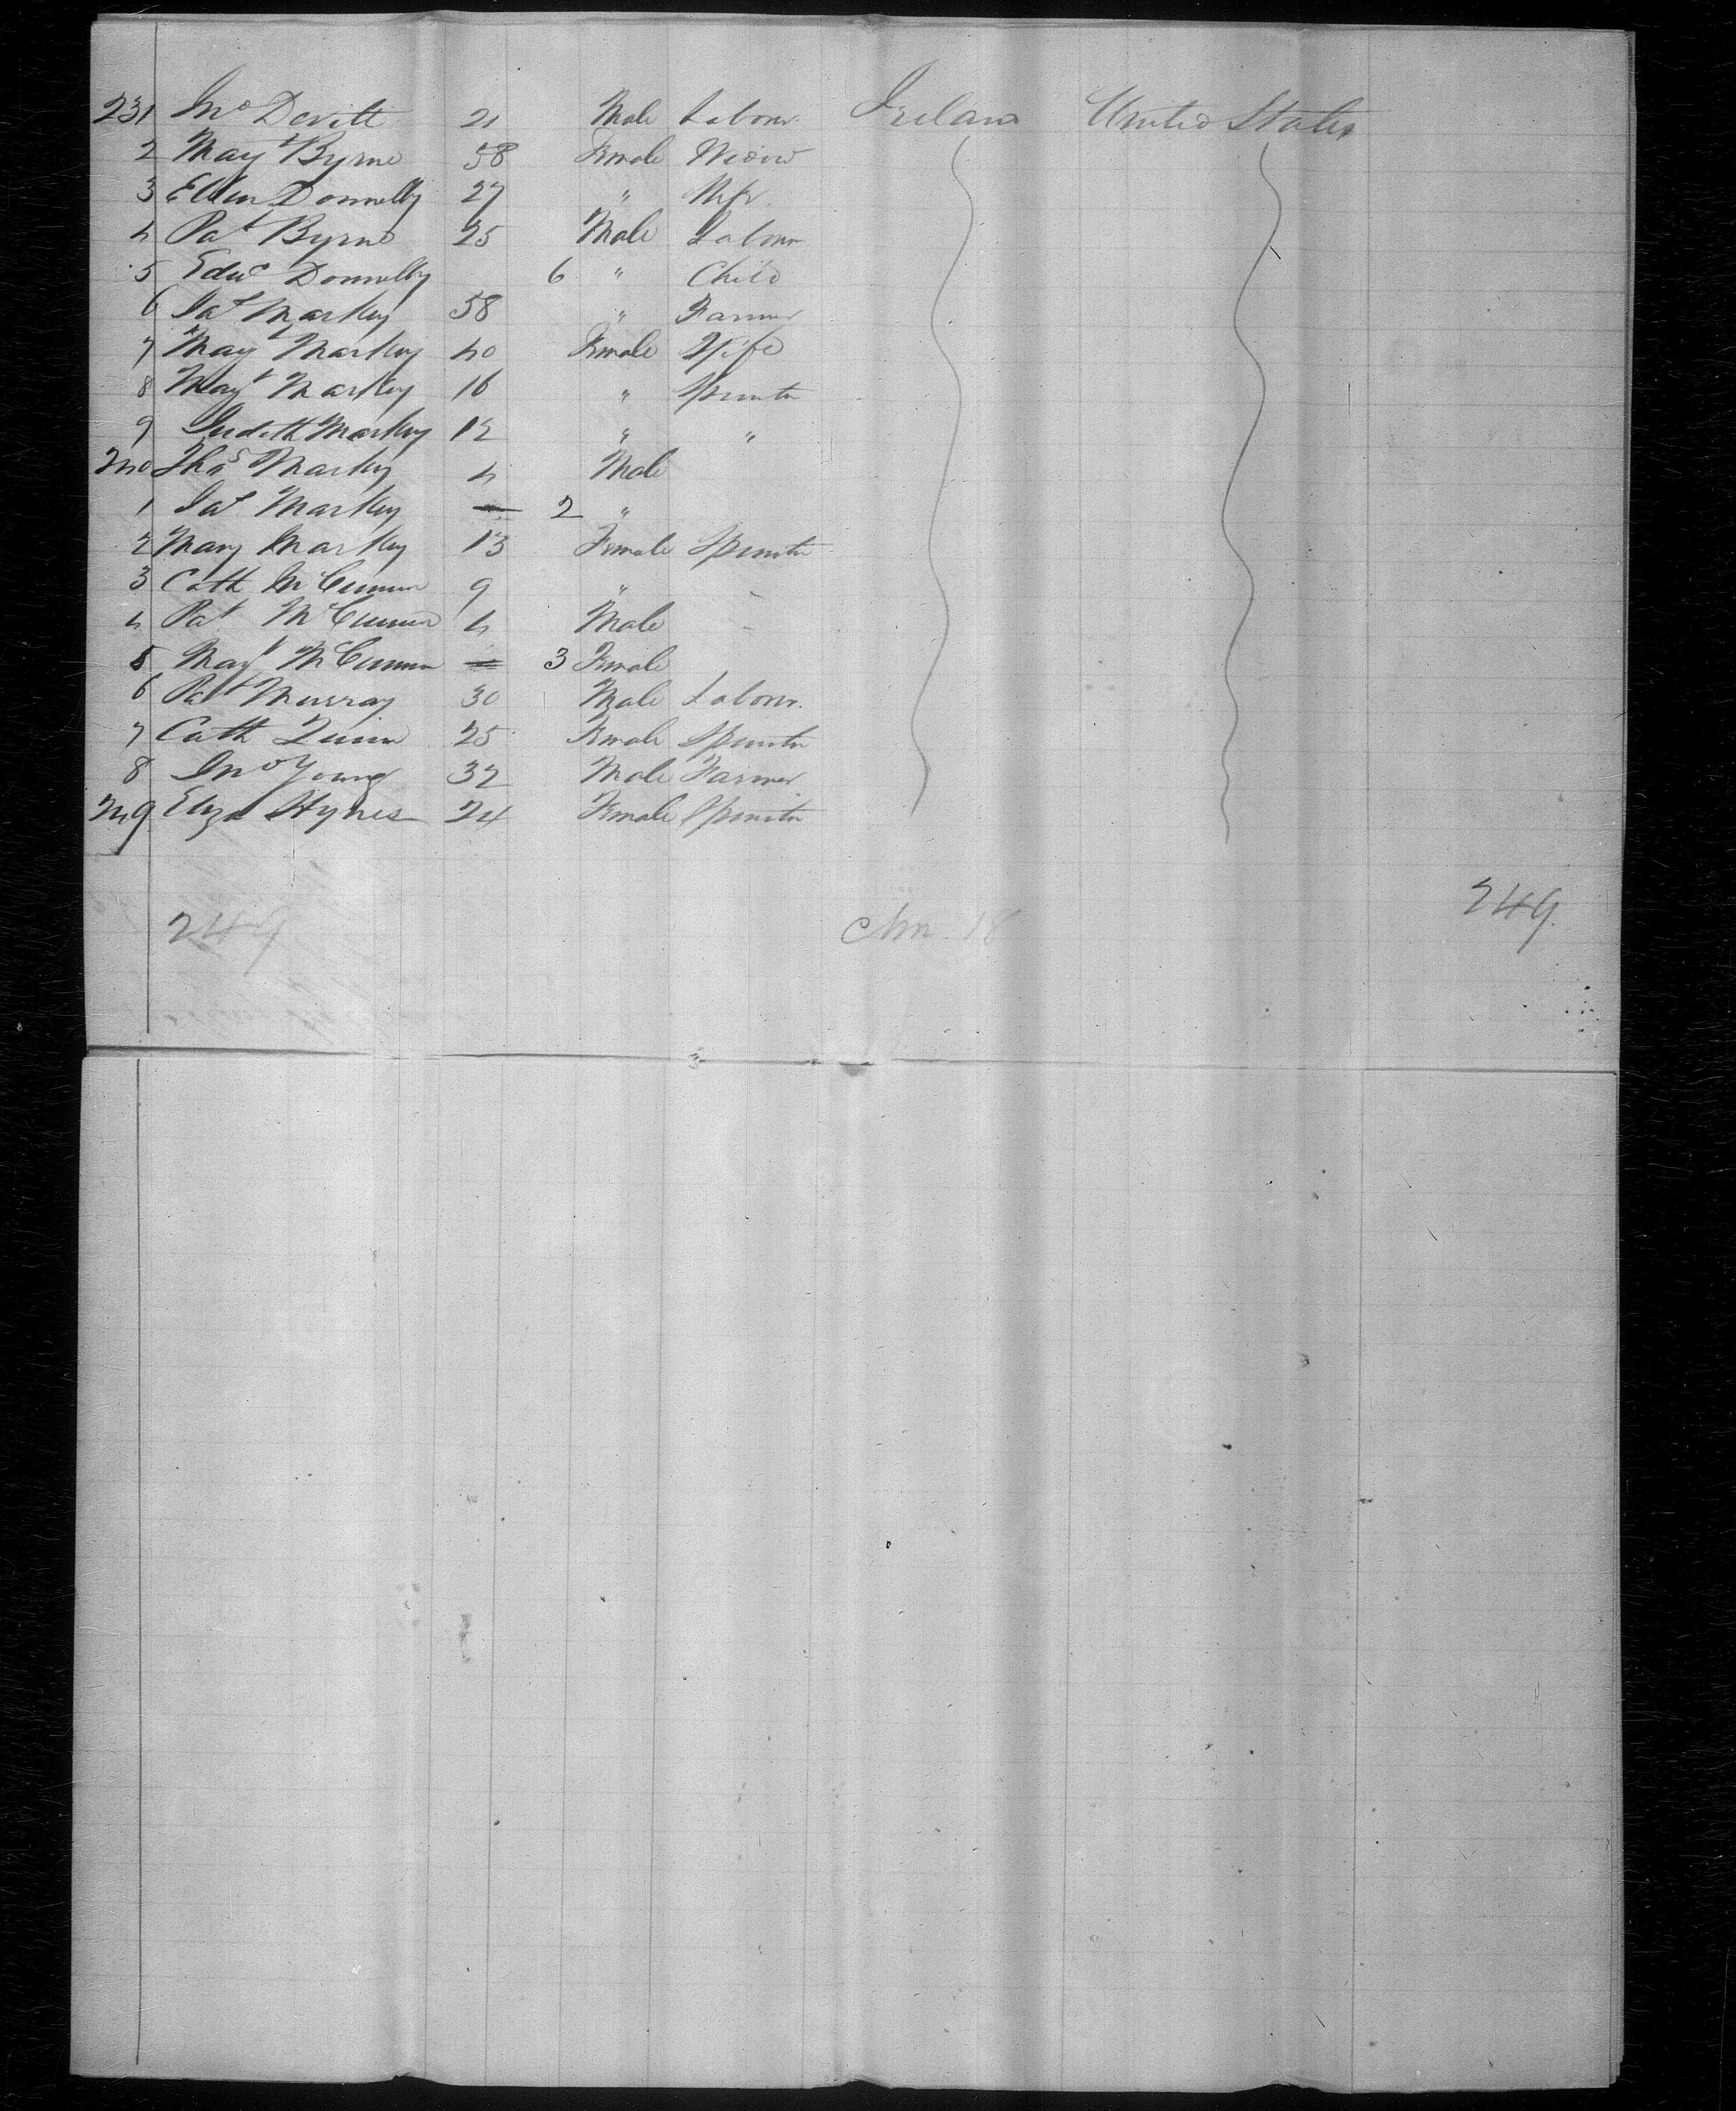 231 Jno Devitt 21 Male Labour. Ireland United States
2 Magt Byrne 58 Female Widow
3 Ellen Donnelly 27 " Wife
4 Pat Byrne 25 Male Labour
5 Edwd Donnelly 6 " Child
6 Jas Markey 58 " Farmer
7 Magt Markey 40 Female Wife
8 Magt Markey 16 " Spinster
9 Judith Markey 12 " "
240 Thos Markey 4 Male
1 Jas Markey 2 "
2 Mary Markey 13 Female Spinster
3 Cath 9 "
4 Pat 4 Male
5 Magt 3 Female
6 Pat Murray 30 Male Labour.
7 Cath Quinn 25 Female Spinster
8 Jno Young 32 Male Farmer
249 Eliza Hynes 24 Female Spinster
249.
249